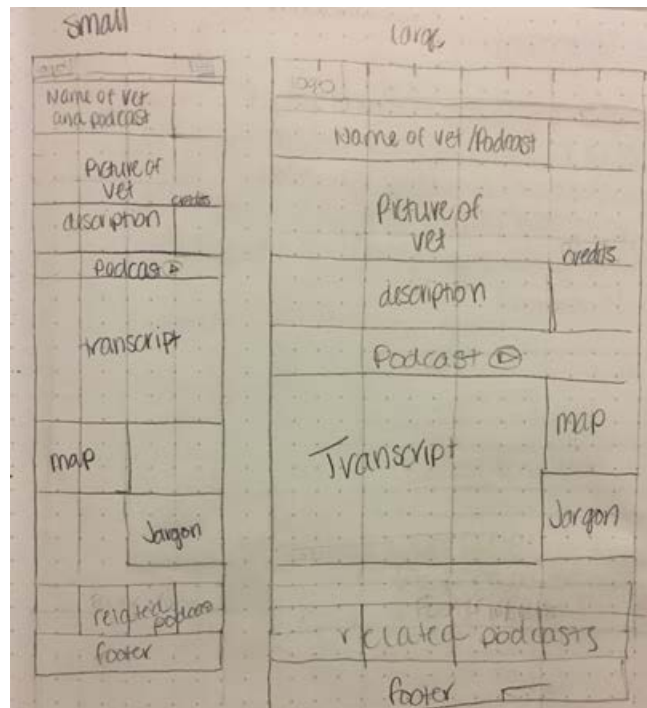 small
logo
Name of vet
and podcast
Picture of
vet
credits
discription
Podcast
transcript
map
Jargon
related
podcast
footer
large
logo
Name of vet/Podcast
Picture of
vet
credits
description
Podcast
Transcript
map
Jargon
related podcasts
footer